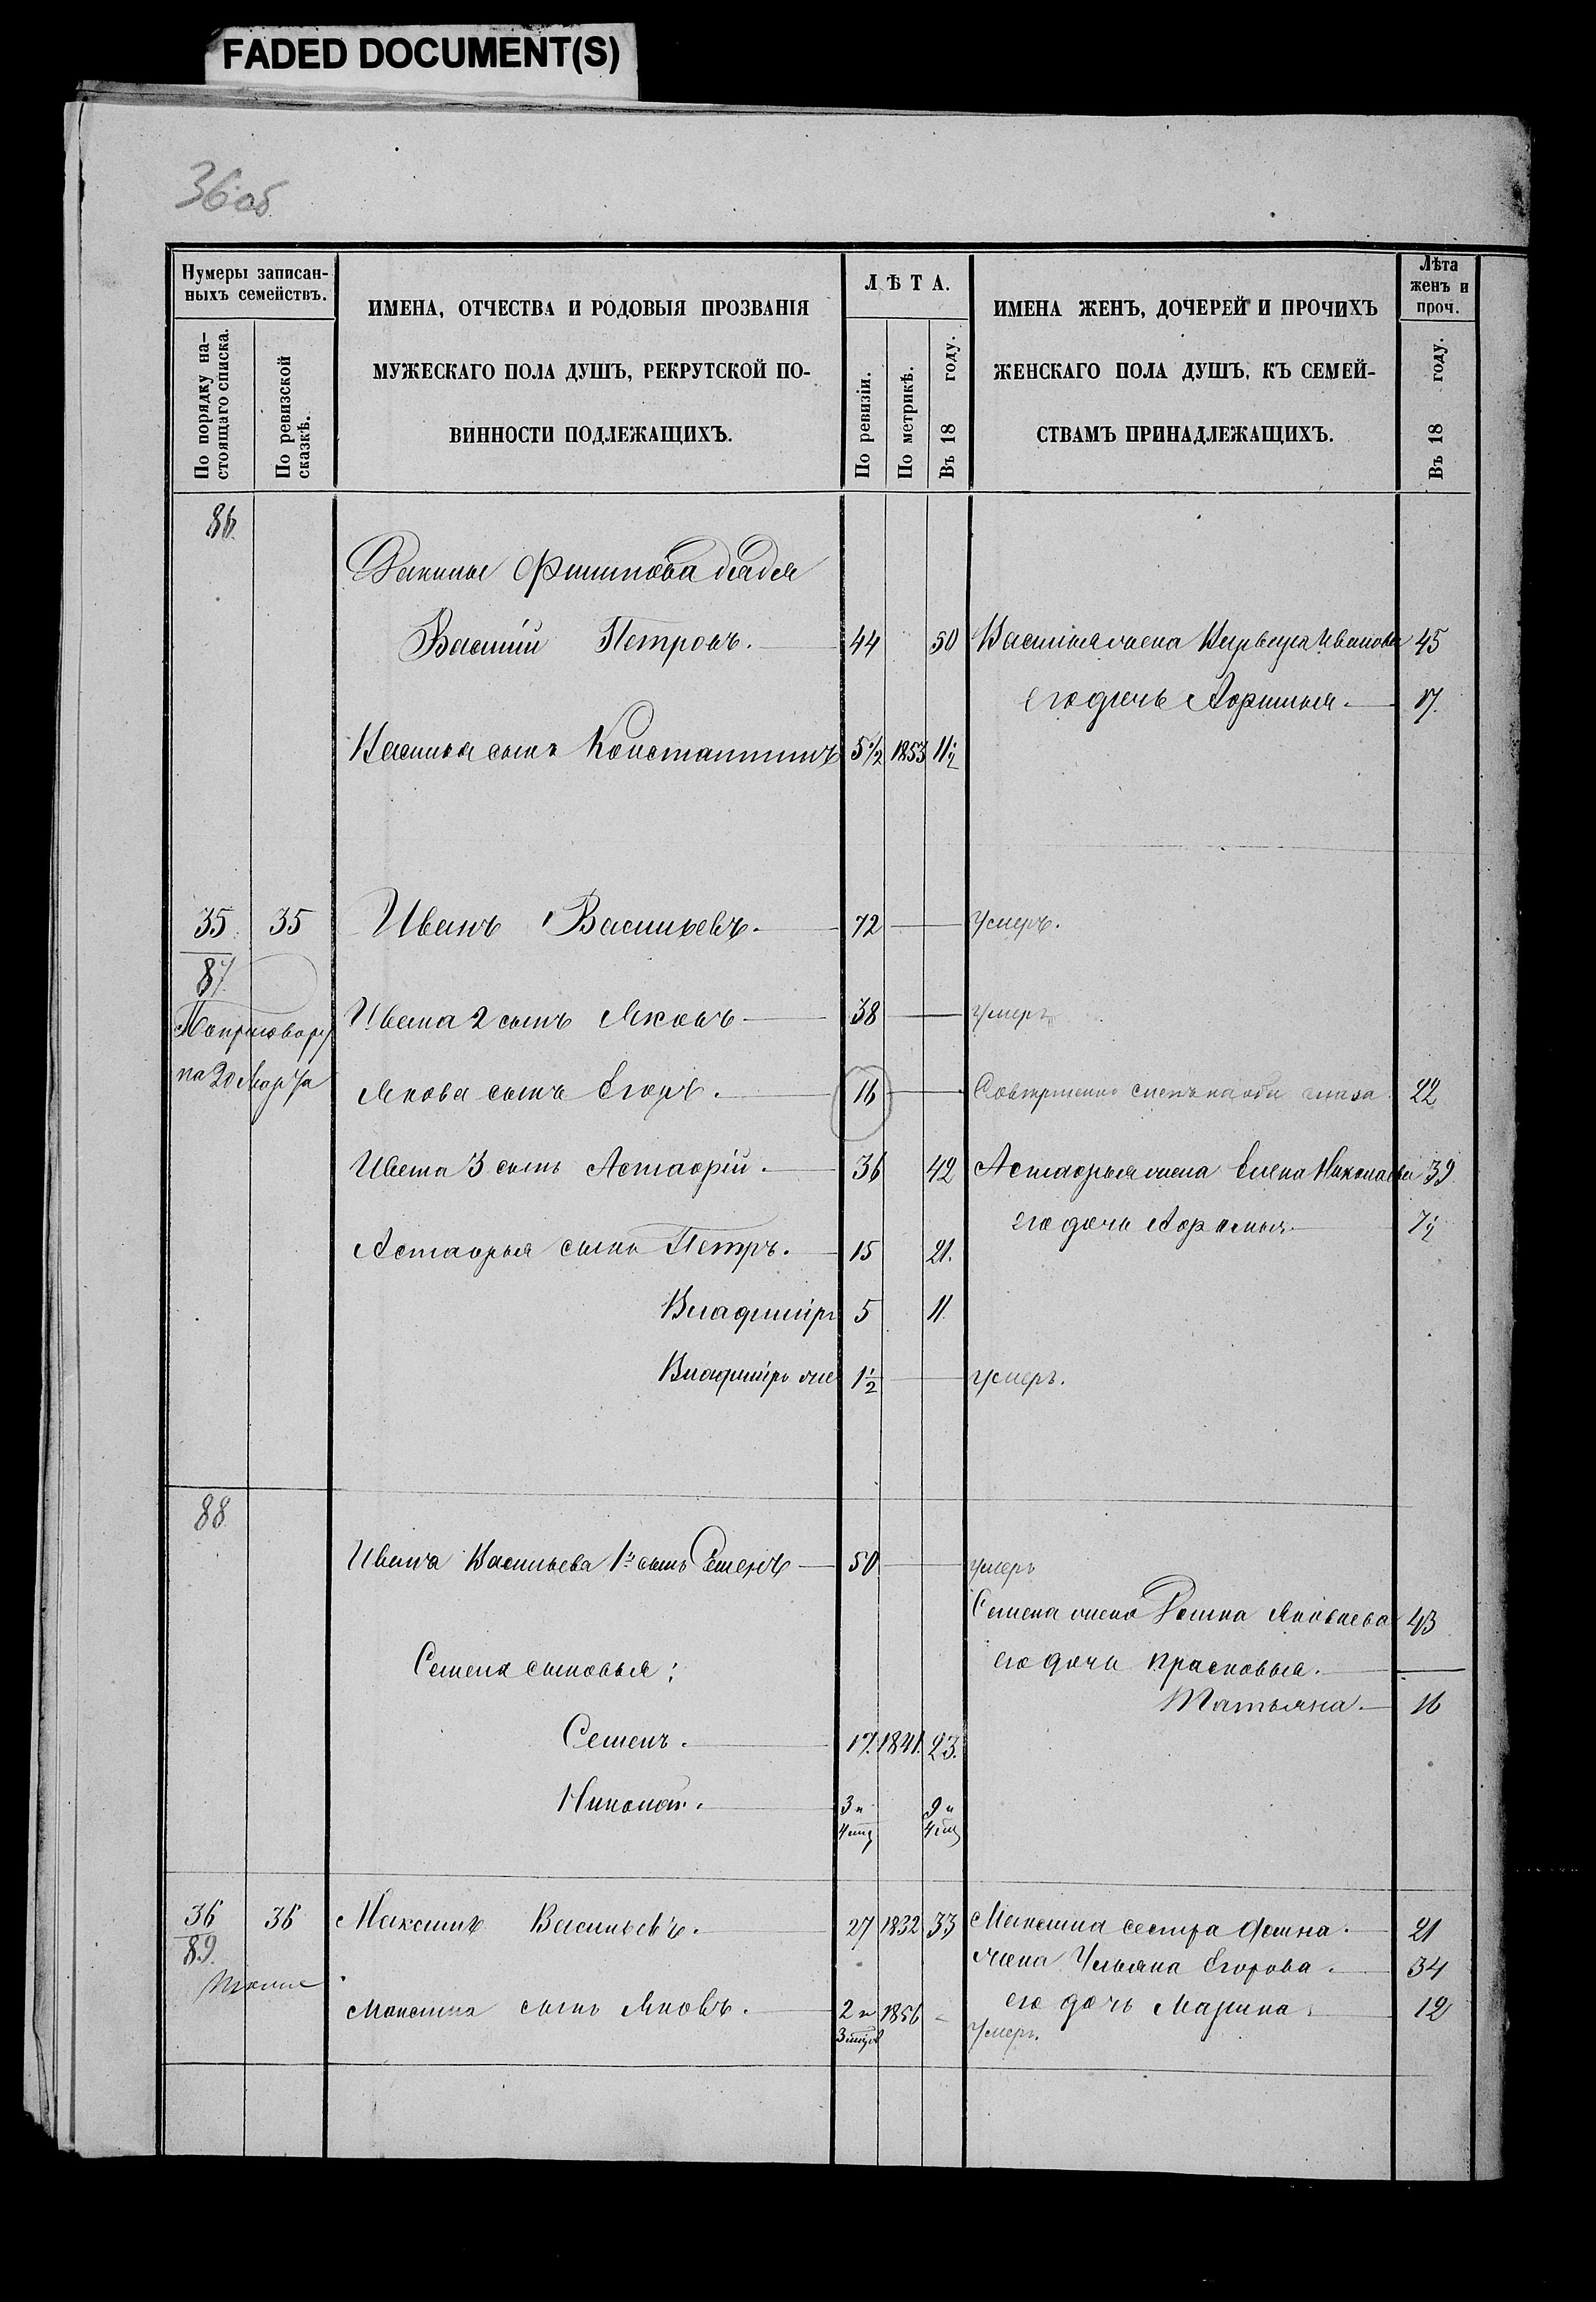 FADED DOCUMENT(S)
36об
Нумеры записан-
ныхъ семействъ.
По порядку на-
стоящаго списка.
По ревизской
сказкѣ.
ИМЕНА, ОТЧЕСТВА И РОДОВЫЯ ПРОЗВАНІЯ
МУЖЕСКАГО ПОЛА ДУШЪ, РЕКРУТСКОЙ ПО-
ВИННОСТИ ПОДЛЕЖАЩИХЪ.
ЛѢТА.
По ревизіи.
По метрикѣ.
Въ 18 году.
ИМЕНА ЖЕНЪ, ДОЧЕРЕЙ И ПРОЧИХЪ
ЖЕНСКАГО ПОЛА ДУШЪ, КЪ СЕМЕЙ-
СТВАМЪ ПРИНАДЛЕЖАЩИХЪ.
Лѣта
женъ и
проч.
Въ 18 году.
86.
Филипова дядя
Василій Петровъ. 44 50 Василья жена Иванова 45
его дочь 17.
Василья сынъ Константинъ 5 1/2 1853 11 1/2
35 35 Иванъ Васильевъ. 72 Умеръ.
87
По приговору
Ивана 2 сынъ Яковъ 38 умеръ
на 20 Марта
Якова сынъ Егоръ. 16 Совершенно слепъ на оба глаза. 22
Ивана 3 сынъ Астафій. 36 42 Астафья жена Елена Николаева 39
его дочь 7 1/2
Астафья сынъ Петръ. 15 21.
Владиміръ 5 11
Владиміръ же 1 1/2 умеръ.
88
Ивана Васильева 1й сынъ Семенъ 50 умеръ
Семена жена Яковлева 43
Семена сыновья: его дочь Прасковья.
Татьяна. 16
Семенъ. 17. 1841. 23.
Николай. 3 и 9 и
4 мц 4 мц
36 36 Максимъ Васильевъ. 27 1832 33 Максима сестра Фекла. 21
89.
жена Ульяна Егорова. 34
Тоже
Максима сынъ Яковъ. 2 и 1856 - его дочь Марина 12
3 мцов Умеръ.